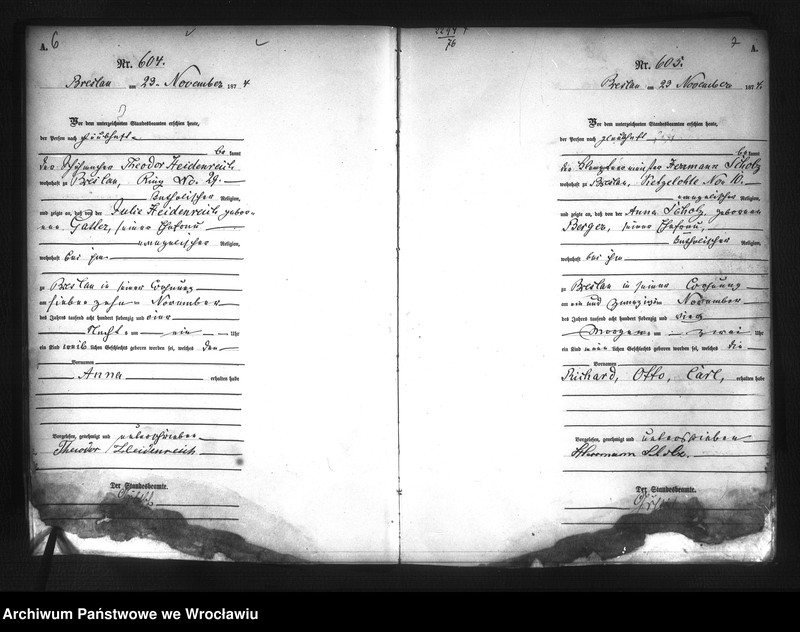 A. 6
Nr. 604.
Breslau am 23. November 1874
Vor dem unterzeichneten Standesbeamten erschien heute,
der Person nach
be kannt
der Theodor Heidenreich
wohnhaft zu Breslau, Ring No. 29.
katholischer Religion,
und zeigte an, daß von der Julie Heidenreich gebor-
nen seiner Ehefrau
evangelischer Religion,
wohnhaft bei ihm
zu Breslau in seiner Wohnung
am siebenzehn November
des Jahres tausend acht hundert siebenzig und vier
Nachts um ein Uhr
ein Kind weib lichen Geschlechts geboren worden sei, welches den
Vornamen
Anna erhalten habe
Vorgelesen, genehmigt und unterschrieben
Theodor Heidenreich
Der Standesbeamte.
2294
76
7 A.
Nr. 605.
Breslau am 23 November 1874.
Vor dem unterzeichneten Standesbeamten erschien heute,
der Person nach
be kannt
der Klemptnermeister Hermann Scholz
wohnhaft zu Breslau, No 10.
evangelischer Religion,
und zeigte an, daß von der Anna Scholz, geborenen
Berger, seiner Ehefrau,
katholischer Religion,
wohnhaft bei ihm
zu Breslau in seiner Wohnung
am ein und zwanzigsten November
des Jahres tausend acht hundert siebenzig und vier
Morgens um zwei Uhr
ein Kind männ lichen Geschlechts geboren worden sei, welches die
Vornamen
Richard, Otto, Carl, erhalten habe
Vorgelesen, genehmigt und unterschrieben
Herrmann Scholz.
Der Standesbeamte.
Archiwum Państwowe we Wrocławiu